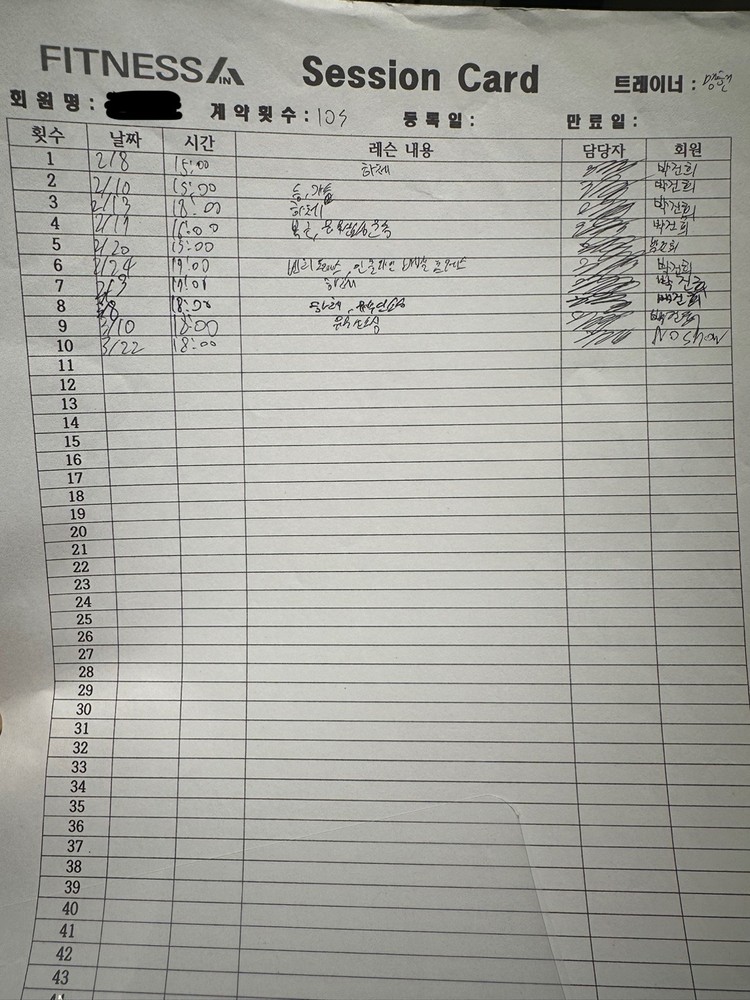 FITNESS IN
Session Card
트레이너 :
회원명 :
계약횟수 : 10S
등록일 :
만료일 :
횟수 날짜 시간 레슨 내용 담당자 회원
1 2/8 15:00 하체 박건희
2 2/10 15:00 박건희
3 2/13 18:00 하체 박건희
4 16:00 박건희
5 2/20 15:00
6 2/24 박건희
7 하체 박건희
8 18:00 박건희
9 3/10 18:00 박건희
10 3/22 18:00 No Show
11
12
13
14
15
16
17
18
19
20
21
22
23
24
25
26
27
28
29
30
31
32
33
34
35
36
37
38
39
40
41
42
43